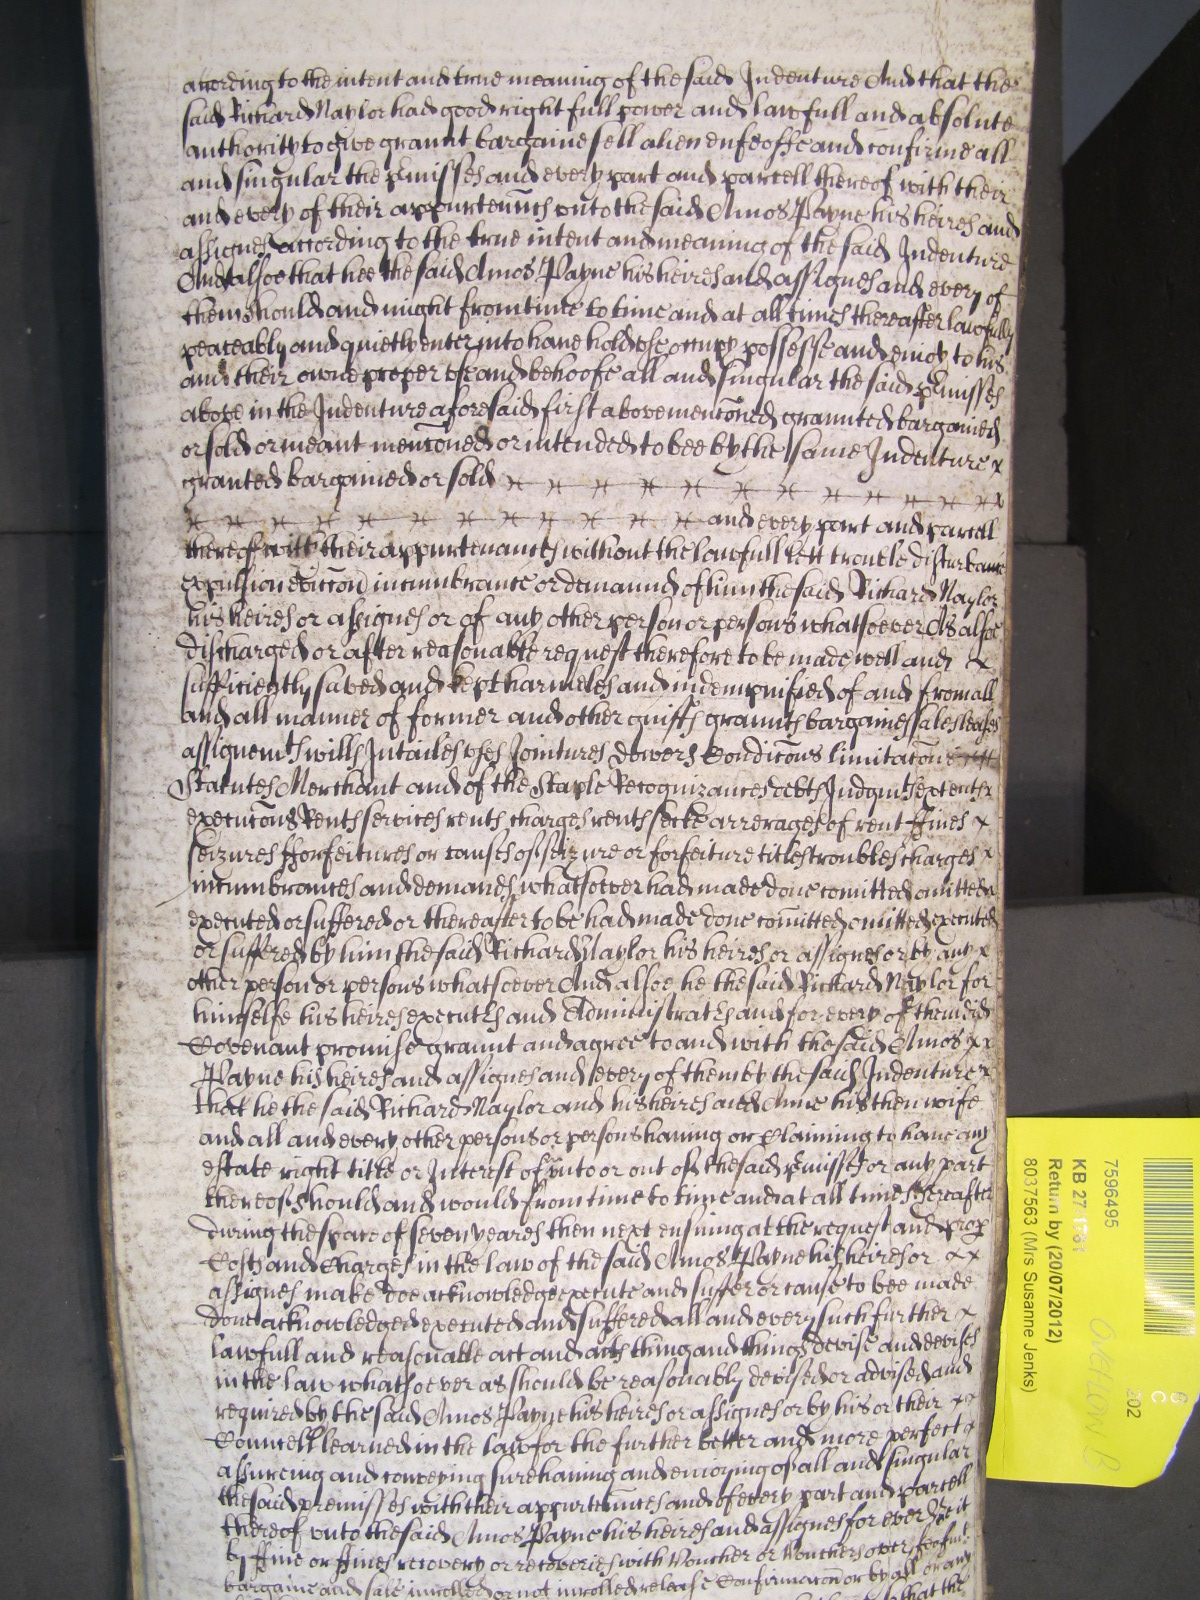 according to the intent and true meaning of the said Indenture And that the
said Richard Naylor had good right full power and lawfull and absolute
authority to give graunt bargaine sell alien enfeoffe and confirme all
and singular the pmisses and every part and parcell thereof with their
and every of their appurtennces vnto the said Amos Payne his heires and
assignes according to the true intent and meaning of the said Indenture
And alsoe that hee the said Amos Payne his heires and assignes and every of
them should and might from time to time and at all times thereafter lawfully
peaceably and quietly enter into have hold vse occupy possesse and enioy to his
and their owne proper vse and behoofe all and singular the said pmisses
above in the Indenture aforesaid first above mencõned graunted bargained
or sold or meant mencõned or intended to bee by the same Indenture x
granted bargained or sold
and every part and parcell
thereof with their appurtenances without the lawfull lett trouble disturbance
expulsion eviccõn incumbrance or demaund of him the said Richard Naylor
his heires or assignes or of any other person or persons whatsoever As alsoe
discharged or after reasonable request therefore to be made well and x
sufficiently saved and kept harmeles and indempnified of and from all
and all manner of former and other guifts graunts bargaines sales leases
assignemts wills Intailes vses Jointures dowers Condicõns limitacõns
Statutes Merchant and of the Staple Recognizances debts Judgmts extents x
execucõns Rents services rents charges rents secke arrerages of rent ffines x
seizures fforfeitures or causes of seizure or forfeiture titles troubles charges x
incumbrances and demands whatsoever had made done comitted omitted
executed or suffered or thereafter to be had made done comitted omitted executed
or suffered by him the said Richard Naylor his heires or assignes or by any x
other person or persons whatsoever And alsoe he the said Richard Naylor for
himselfe his heires executrs and Administratrs and for every of them did
Covenant promise graunt and agree to and with the said Amos x x
Payne his heires and assignes and every of them by the said Indenture x
that he the said Richard Naylor and his heires and Anne his then wife
and all and every other persons or persons having or Claiming to have any
estate right title or Interest of vnto or out of the said pmisses or any part
thereof should and would from time to time and at all times thereafter
during the space of seven yeares then next ensuing at the request and prop
Costs and Charges in the law of the said Amos Payne his heires or x x
assignes make doe acknowledge execute and suffer or cause to bee made
done acknowledged executed and suffered all and every such further x
lawfull and reasonable act and acts thing and things devise and devises
in the law whatsoever as should be reasonably devised or advised and
required by the said Amos Payne his heires or assignes or by his or their x x
Councell learned in the law for the further better and more perfect x
assureing and conveying sure having and enioying of all and singular
the said premisses with their appurtennces and of every part and parcell
thereof vnto the said Amos Payne his heires and assignes for ever be it
by ffine or ffines recovery or recoveries with Voucher or Vouchers over feofmt
bargaine and sale inrolled or not inrolled release Confirmacõn or by all or any
that the
7596495
KB 27 1781
Return by (20/07/2012)
8037563 (Mrs Susanne Jenks)